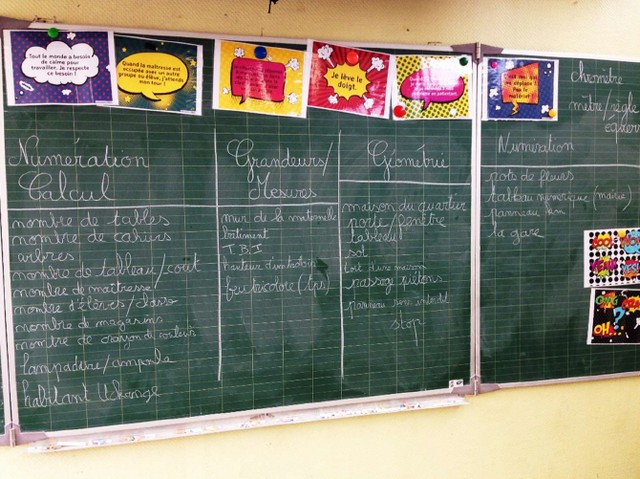 Tout le monde a besoin
de calme pour
travailler. Je respecte
ce besoin !
Quand la maîtresse est
occupée avec un autre
groupe ou élève, j'attends
mon tour !
Je lève le
doigt.
matériel.
Numération
Calcul
nombre de tables
nombre de cahiers
arbres
nombre de tableau /
nombre de maîtresse /
nombre d'élèves / classe
nombre de magasins
nombre de crayon de couleur
lampadaire / ampoule
habitant Uckange
Grandeurs /
Mesures
mur de la maternelle
bâtiment
T.B.I
hauteur d'
feu tricolore
Géométrie
maison du quartier
porte / fenêtre
tableau
sol
toit d'une maison
passage piétons
panneau sens interdit
stop
mètre / règle
Numération
pots de fleurs
tableau numérique (mairie)
panneau
la gare